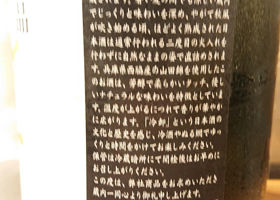 でじっくりと味わいを深め、やがて秋風
が吹き始める頃、ほどよく熟成された日
本酒は通常行われる二度目の火入れを
行わずに自然なままの味で直詰めされま
す。兵庫県西脇産の山田錦を使用したこ
のお酒は、芳醇で柔らかいタッチ、優し
いナチュラルな味わいを特徴としていま
す。温度が上がるにつれて香りが華やか
に広がります。「冷卸」という日本酒の
文化と歴史を感じ、冷酒やぬる燗でゆっ
くりと時間をかけてお楽しみください。
保管は冷蔵暗所にて開栓後はお早めに
お召し上がりください。
この度は、弊社商品をお求めいただき
蔵内一同心より御礼申し上げます。